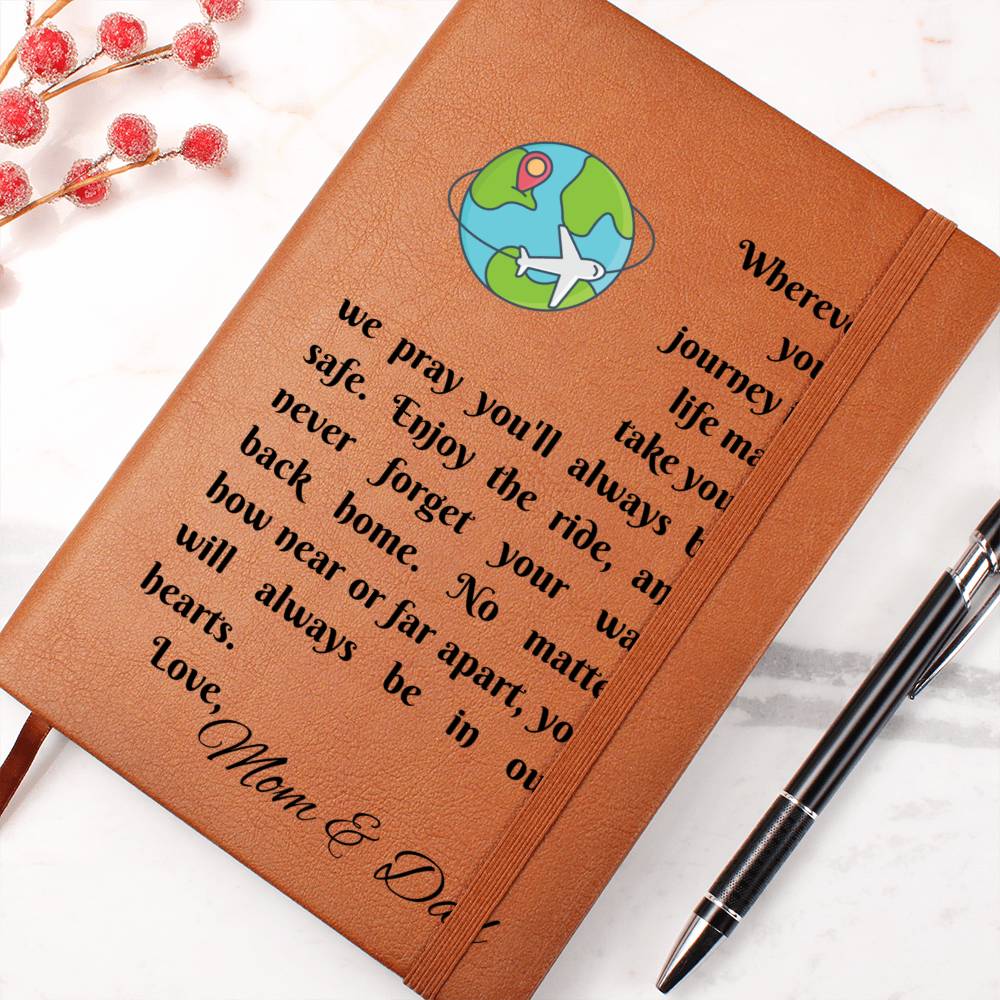 Wherev
you
journey
life ma
take you
we pray you'll always b
safe. Enjoy the ride, an
never forget your wa
back home. No matte
how near or far apart, yo
will always be in ou
hearts.
Love,
Mom & Dad